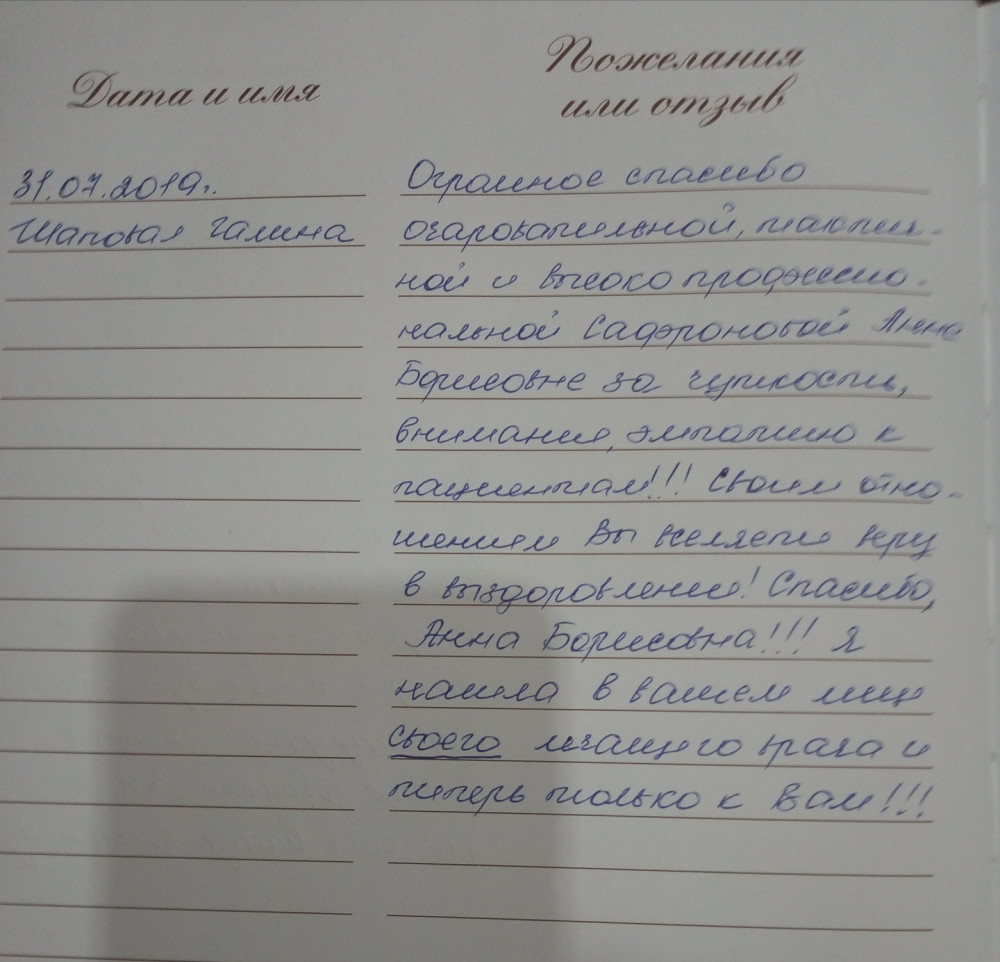 Дата и имя
Пожелания
или отзыв
31.07.2019г.
Шаповал Галина
Огромное спасибо
очаровательной, тактич-
ной и высоко профессио-
нальной Сафроновой Анне
Борисовне за чуткость,
внимание, эмпатию к
пациентам!!! Своим отно-
шением Вы вселяете веру
в выздоровление! Спасибо,
Анна Борисовна!!! Я
нашла в вашем лице
своего лечащего врача и
теперь только к Вам!!!